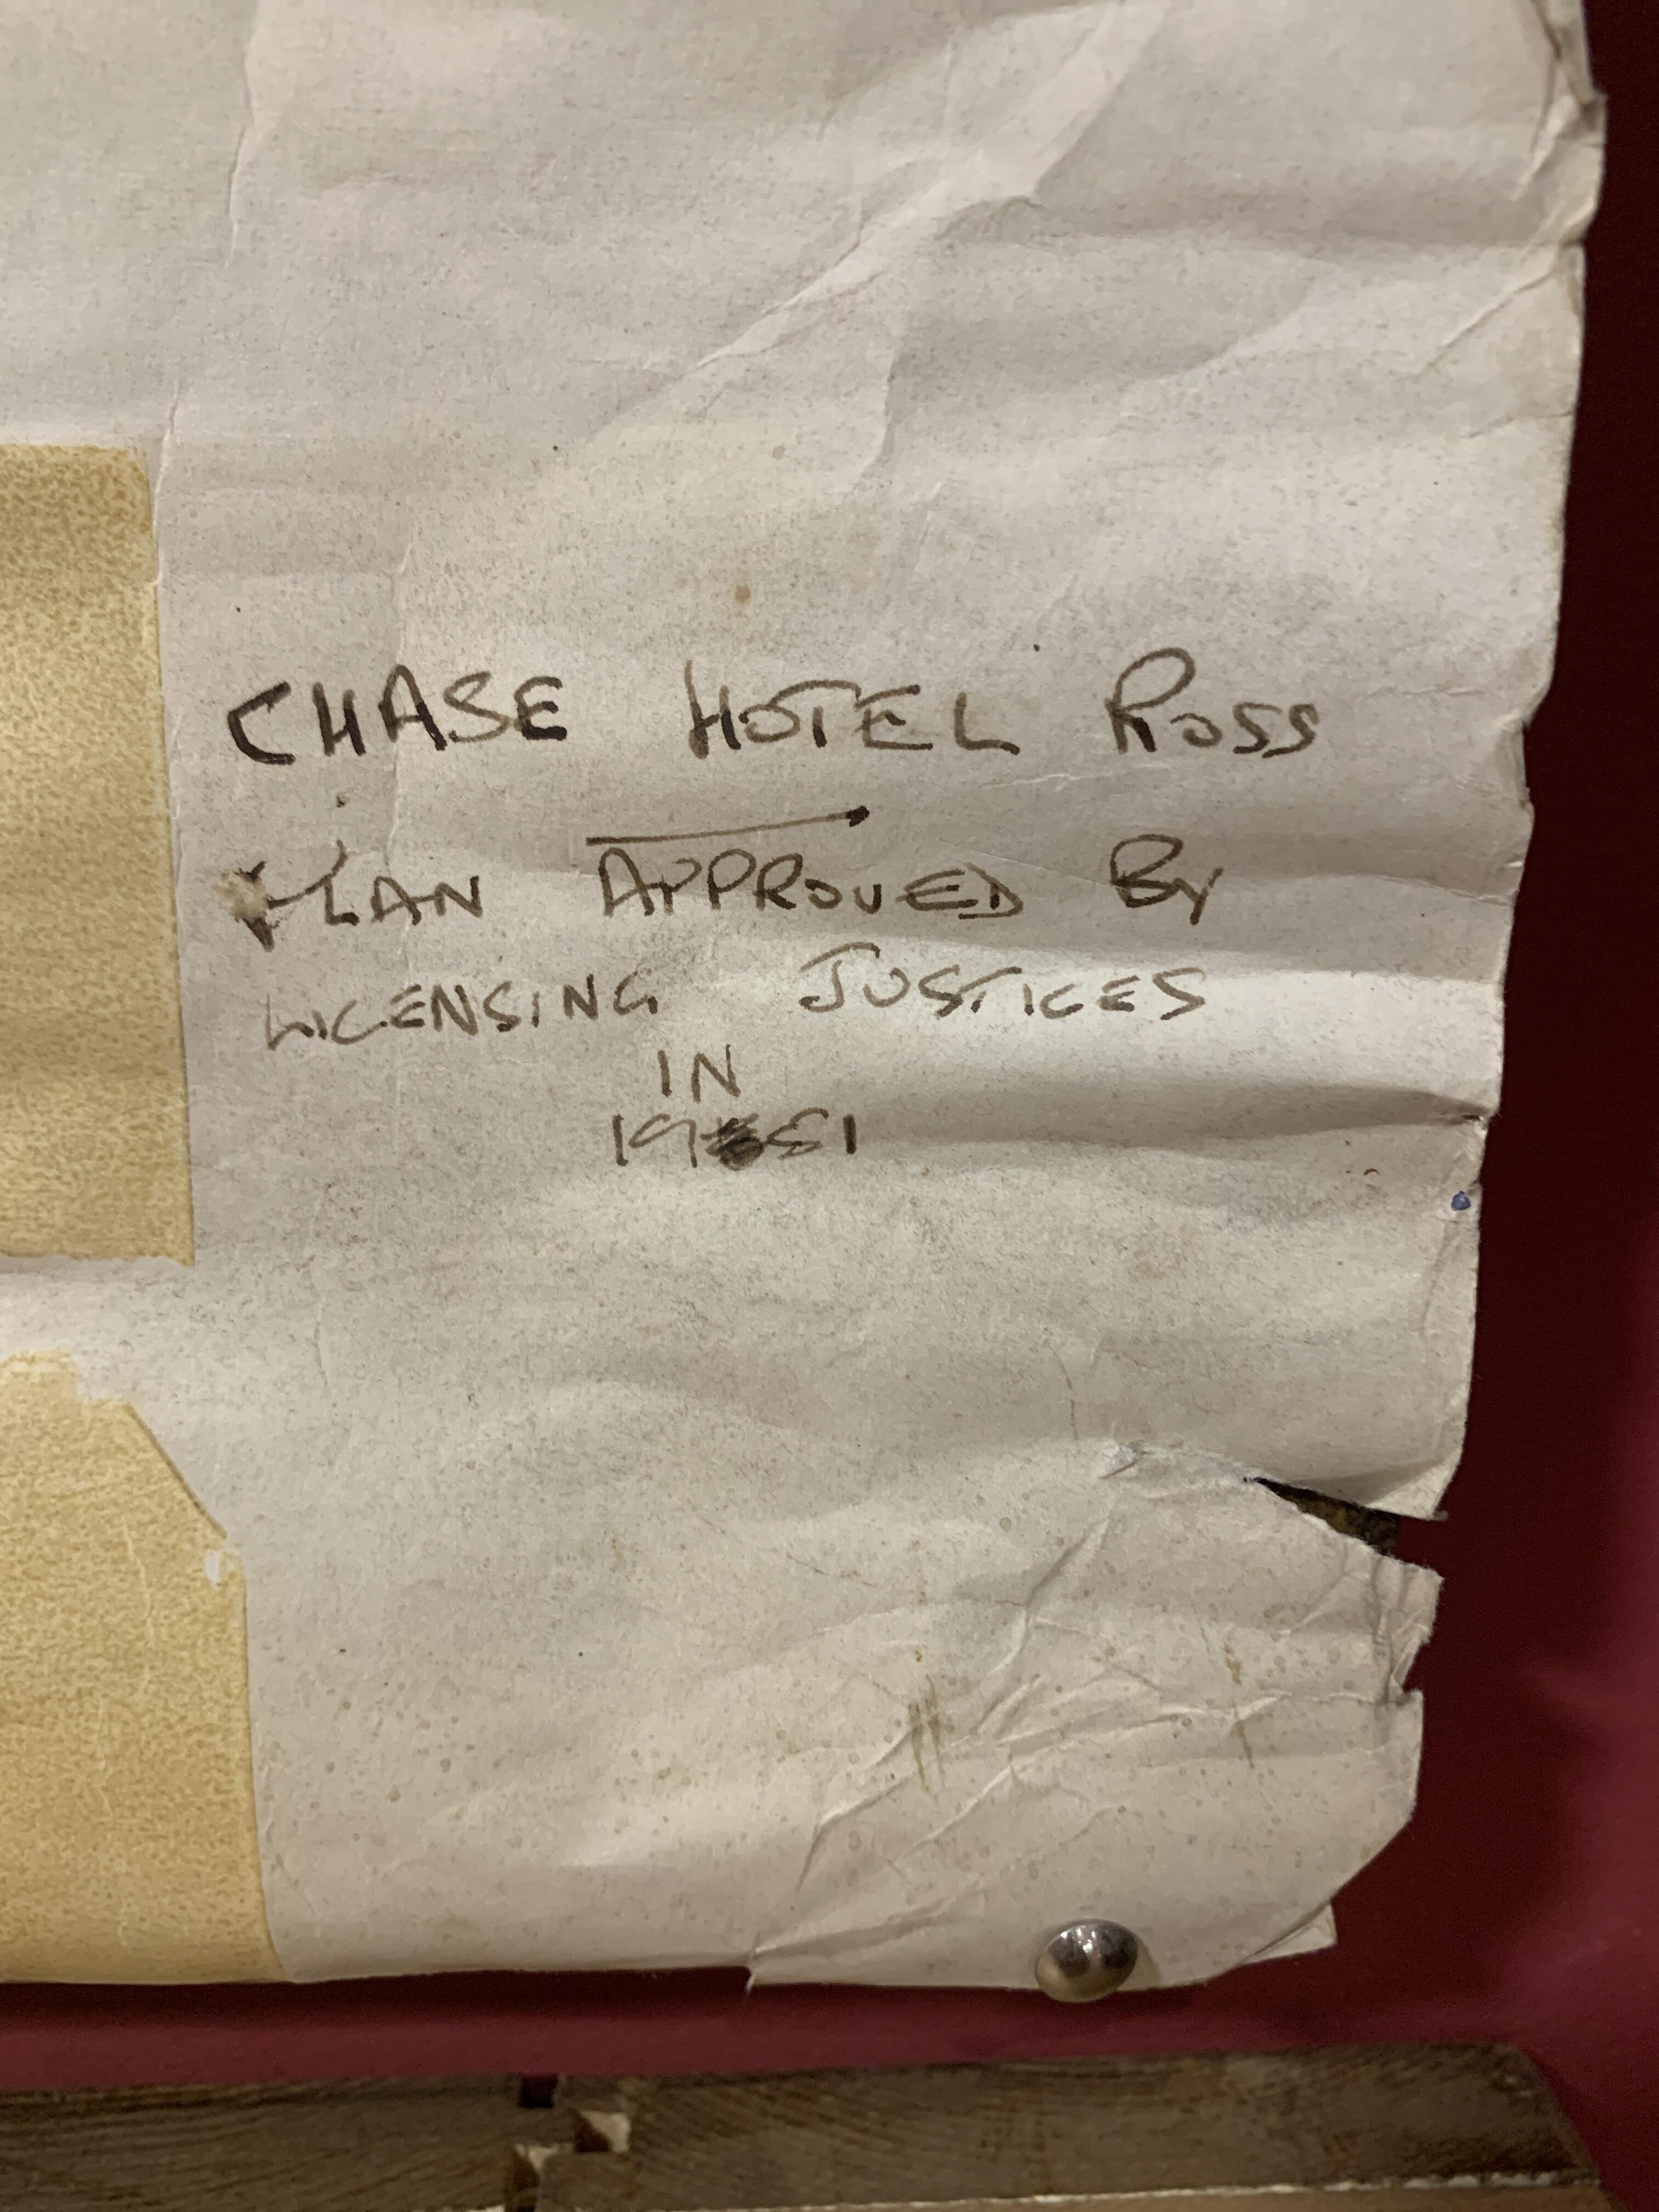 CHASE HOTEL ROSS
PLAN APPROVED BY
LICENSING JUSTICES
IN